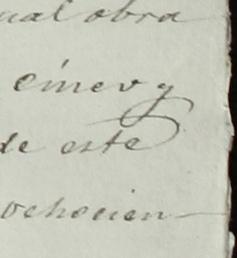 ual obra
cinco y
de este
ochocien-